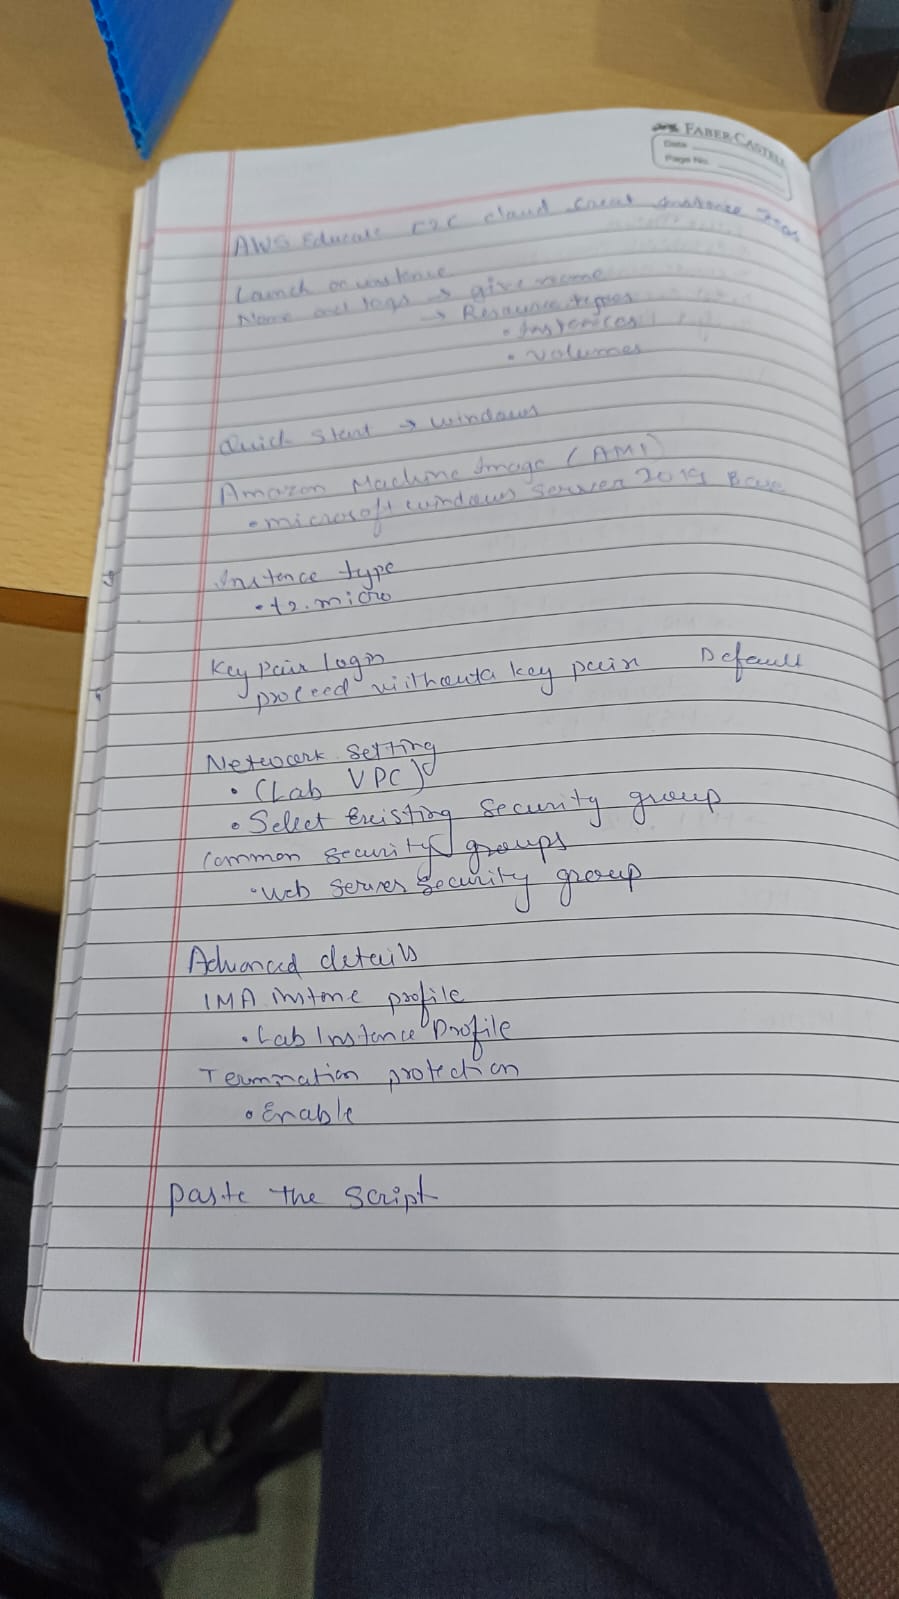 FABER-CASTELL
Date
Page No.
AWS Educate cloud instance
Launch an instence
Name and tags → give name
→ Resource types
• Instances
• volumes
Quick Start → windows
Amazon Machine Image (AMI)
• microsoft windows server 2019 Base
Instence type
• t2.micro
Key pair login
proceed withouta key pair Default
Network Setting
• (Lab VPC)
• Select Existing Security group
Common Security groups
• Web Server Security group
Advanced details
IMA instone profile
• Lab Instance Profile
Termination protection
• Enable
paste the script